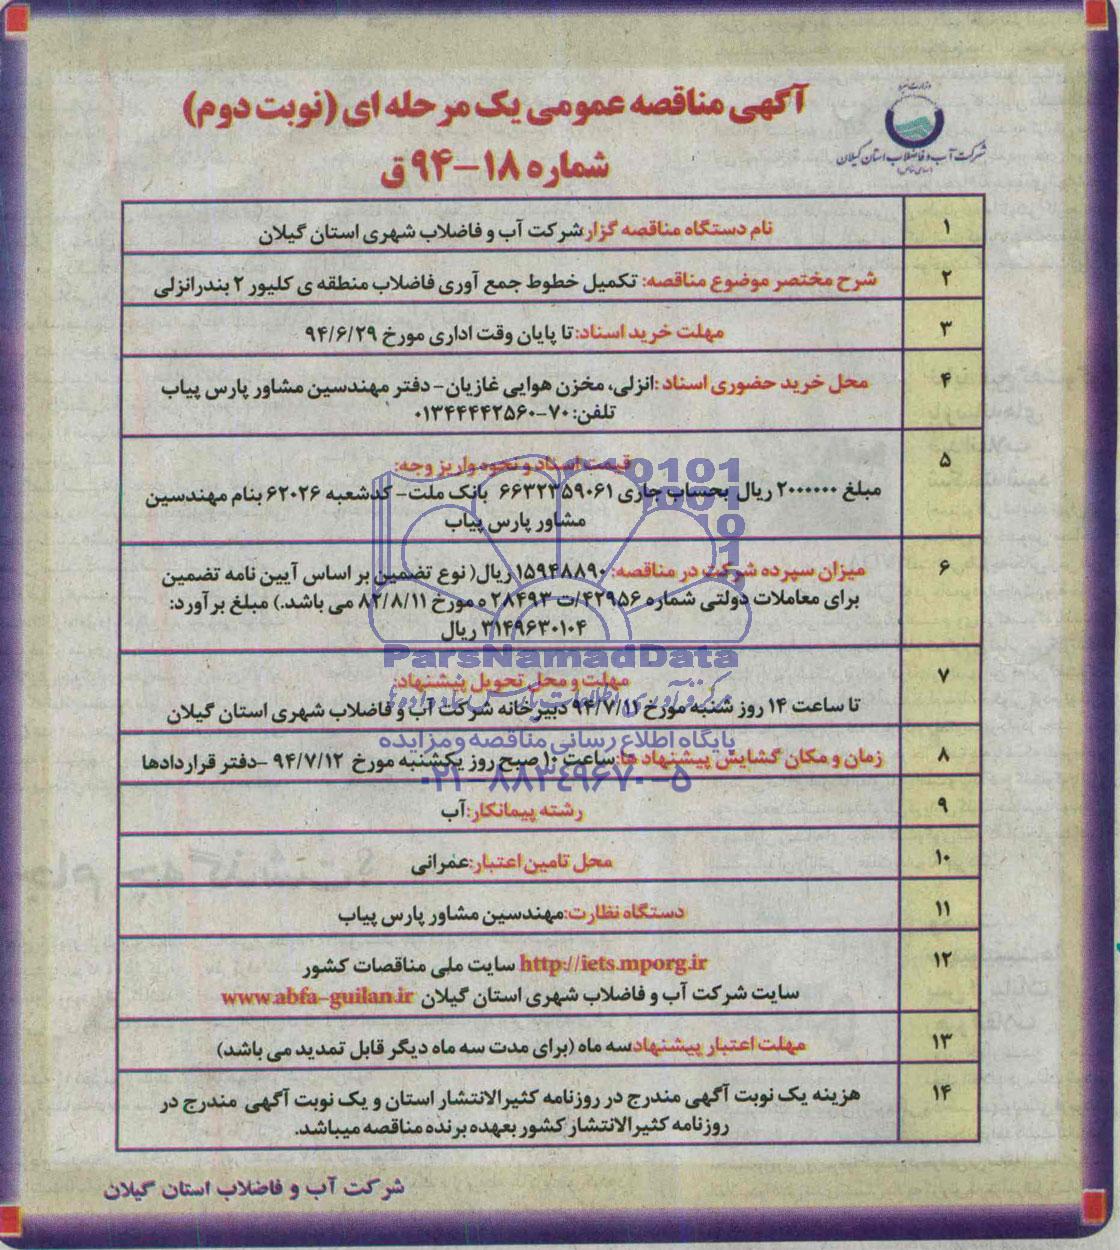 وزارت نیرو
شرکت آب و فاضلاب استان گیلان
(سهامی خاص)
آگهی مناقصه عمومی یک مرحله ای (نوبت دوم)
شماره ۱۸-۹۴ ق
۱ نام دستگاه مناقصه گزار:شرکت آب و فاضلاب شهری استان گیلان
۲ شرح مختصر موضوع مناقصه: تکمیل خطوط جمع آوری فاضلاب منطقه ی کلیور ۲ بندرانزلی
۳ مهلت خرید اسناد:تا پایان وقت اداری مورخ ۹۴/۶/۲۹
۴ محل خرید حضوری اسناد :انزلی، مخزن هوایی غازیان- دفتر مهندسین مشاور پارس پیاب
تلفن: ۷۰-۰۱۳۴۴۴۴۲۵۶۰
۵ قیمت اسناد و نحوه واریز وجه:
مبلغ ۲۰۰۰۰۰۰ ریال بحساب جاری ۶۶۳۲۳۵۹۰۶۱ بانک ملت- کدشعبه ۶۲۰۲۶ بنام مهندسین
مشاور پارس پیاب
۶ میزان سپرده شرکت در مناقصه: ۱۵۹۴۸۸۹۰ ریال( نوع تضمین بر اساس آیین نامه تضمین
برای معاملات دولتی شماره ۴۲۹۵۶/ت ۲۸۴۹۳ ه مورخ ۸۲/۸/۱۱ می باشد.) مبلغ برآورد:
۳۱۴۹۶۳۰۱۰۴ ریال
۷ مهلت و محل تحویل پیشنهاد:
تا ساعت ۱۴ روز شنبه مورخ ۹۴/۷/۱۱ دبیرخانه شرکت آب و فاضلاب شهری استان گیلان
۸ زمان و مکان گشایش پیشنهاد ها:ساعت ۱۰ صبح روز یکشنبه مورخ ۹۴/۷/۱۲ -دفتر قراردادها
۹ رشته پیمانکار:آب
۱۰ محل تامین اعتبار:عمرانی
۱۱ دستگاه نظارت:مهندسین مشاور پارس پیاب
۱۲ http://iets.mporg.ir سایت ملی مناقصات کشور
سایت شرکت آب و فاضلاب شهری استان گیلان www.abfa-guilan.ir
۱۳ مهلت اعتبار پیشنهاد:سه ماه (برای مدت سه ماه دیگر قابل تمدید می باشد)
۱۴ هزینه یک نوبت آگهی مندرج در روزنامه کثیرالانتشار استان و یک نوبت آگهی مندرج در
روزنامه کثیرالانتشار کشور بعهده برنده مناقصه میباشد.
شرکت آب و فاضلاب استان گیلان
ParsNamadData
پایگاه اطلاع رسانی مناقصه و مزایده
۰۲۱-۸۸۳۴۹۶۷۰-۵